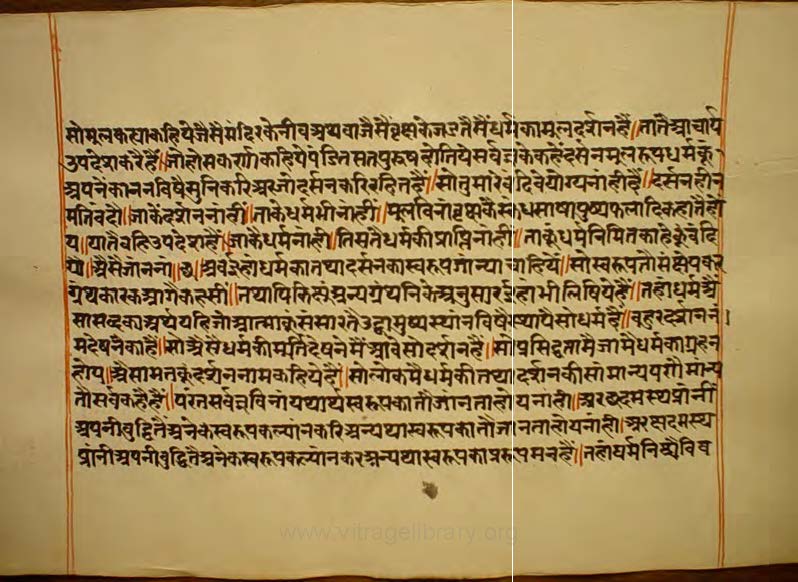 सो मूल कह्या कहिये जैसै मंदिर के नीव अथवा जैसै वृक्ष के जड तैसैं धर्म का मूल दर्शन है॥ तातैं आचार्य
उपदेश करै हैं॥ जो हो सकर्णा कहिये पंडित सतपुरुष हो तिये सर्वज्ञ के कहे दर्सन मूल रूप धर्म कूं
अपने कानन विषै सुनि करि अर जो दर्सन करि रहित है॥ सो तुमारे वंदिवे योग्य नांही है॥ दर्सन हीन
मति वंदौ॥ जाके दर्शन नांही॥ ताके धर्म भी नांही॥ मूल विनां वृक्ष कै स्कंध साषा पुष्प फलादि कहा तै हो
य॥ यातै यह उपदेश है॥ जाकै धर्म नांही॥ तिस तै धर्म की प्राप्ति नांही॥ ताकूं धर्म निमित काहे कूं वंदि
यो॥ अैसै जाननां॥ छ॥ अव इहां धर्म का तथा दर्सन का स्वरूप जांन्या चाहिये॥ सो स्वरूप तो संक्षेप कर
ग्रंथकार क आगै कहसी॥ तथापि किछू अन्य ग्रंथनि के अनुसार इहां भी लिषिये है॥ तहां धर्म अै
सा सब्द का अर्थ यह जो आत्मा कूं संसार तै उद्धा मुष्य स्थांन विषै स्थापै सो धर्म है॥ बहुर दर्शन नं
म देषने का है॥ सो अैसे धर्म की मूर्ति देषन मै आवै सो दर्शन है॥ सो प्रसिद्धता मै जामै धर्म का ग्रहन
होय॥ अैसा मत कूं दर्शन नाम कहिये है॥ सो लोक मै धर्म की तथा दर्शन की सांमान्य पणै मान्य
तौ सर्व कै है है॥ परंत सर्वज्ञ विनां यथार्थ स्वरूप का तौ जानता होय नांही॥ अर छदमस्थ प्रांनी
अपनी बुद्धि तै अनेक स्वरूप कल्पांन करि अन्यथा स्वरूप का तौ जानता होय नांही॥ अर छदमस्थ
प्रांनी अपनी बुद्धि तै अनेक स्वरूप कल्पांन कर अन्यथा स्वरूप का प्ररूपमन है॥ तहां धर्म निश्चै विष
www.vitragelibrary.org